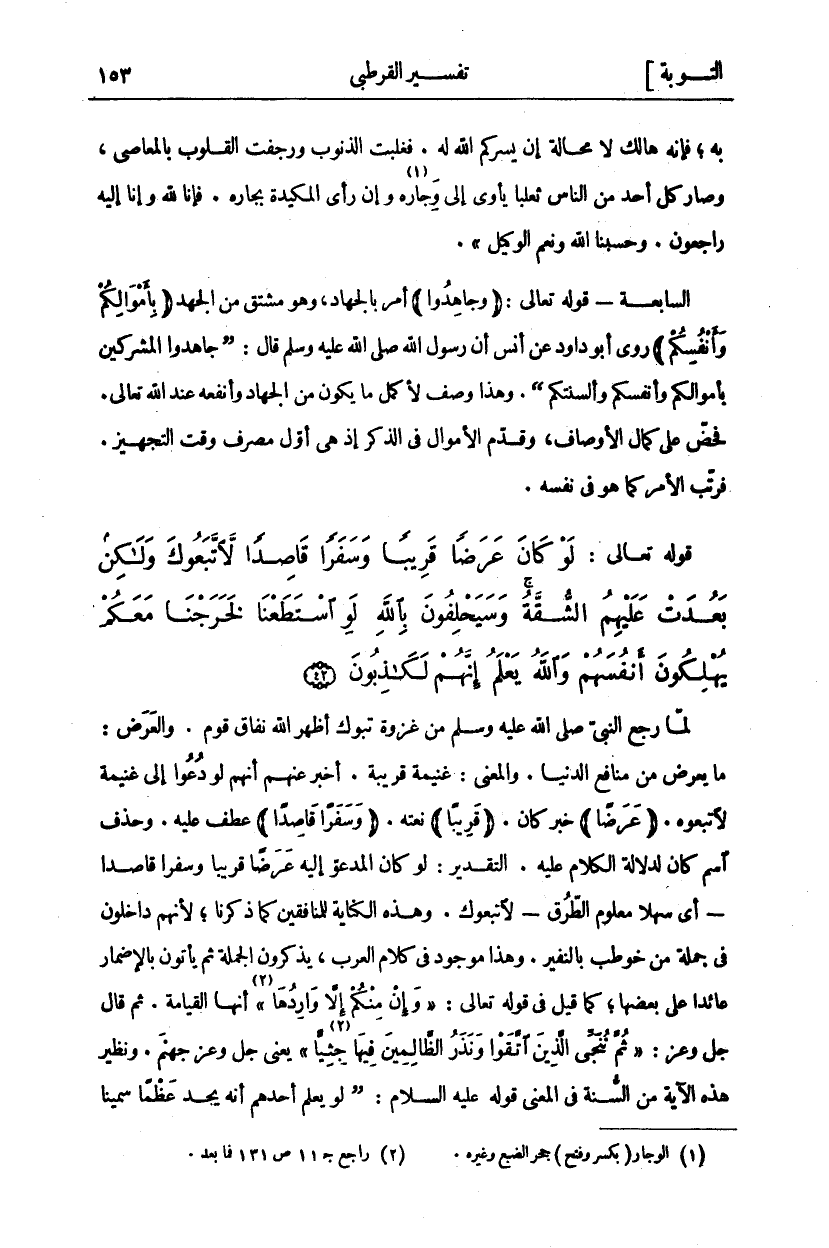 التـــوبة ] تفســـير القرطبى ١٥٣
به ؛ فإنه هالك لا محـالة إن يسركم الله له . فغلبت الذنوب ورجفت القـلوب بالمعاصى ،
وصار كل أحد من الناس ثعلبا يأوى إلى وَِجاره (١) و إن رأى المكيدة بجاره . فإنا لله و إنا إليه
راجعون . وحسبنا الله ونعم الوكيل » .
السابعــة — قوله تعالى : ﴿ وجاهِدُوا ﴾ أمر بالجهاد، وهو مشتق من الجهد ﴿ بِأَمْوَالِكُمْ
وَأَنْفُسِكُمْ ﴾ روى أبو داود عن أنس أن رسول الله صلى الله عليه وسلم قال : ” جاهدوا المشركين
بأموالكم وأنفسكم وألسنتكم “ . وهذا وصف لأكمل ما يكون من الجهاد وأنفعه عند الله تعالى.
فحضّ على كمال الأوصاف، وقـدّم الأموال فى الذكر إذ هى أوّل مصرف وقت التجهيـز .
فرتّب الأمر كما هو فى نفسه .
قوله تعـالى : لَوْ كَانَ عَرَضًا قَرِيبًـا وَسَفَرًا قَاصِـدًا لَّاتَّبَعُوكَ وَلَـٰكِنۢ
بَعُـدَتْ عَلَيْهِمُ الشُّـقَّةُ ۚ وَسَيَحْلِفُونَ بِٱللَّهِ لَوِ ٱسْتَطَعْنَا لَخَرَجْنَـا مَعَكُمْ
يُهْلِكُونَ أَنفُسَهُمْ وَٱللَّهُ يَعْلَمُ إِنَّهُمْ لَكَـٰذِبُونَ ﴿٤٢﴾
لمّـا رجع النبىّ صلى الله عليه وسـلم من غزوة تبوك أظهر الله نفاق قوم . والعَرَض :
ما يعرض من منافع الدنيـا . والمعنى : غنيمة قريبة . أخبر عنهـم أنهم لو دُعُوا إلى غنيمة
لاتبعوه . ﴿ عَرَضًا ﴾ خبر كان . ﴿ قَرِيبًا ﴾ نعته . ﴿ وَسَفَرًا قَاصِدًا ﴾ عطف عليه . وحذف
ٱسم كان لدلالة الكلام عليه . التقـدير : لو كان المدعوّ إليه عَرَضًا قريبا وسفرا قاصـدا
— أى سهلا معلوم الطُّرق — لاتبعوك . وهـذه الكناية للمنافقين كما ذكرنا ؛ لأنهم داخلون
فى جملة من خوطب بالنفير . وهذا موجود فى كلام العرب ، يذكرون الجملة ثم يأتون بالإضمار
عائدا على بعضها؛ كما قيل فى قوله تعالى : « وَإِنْ مِنْكُمْ إِلَّا وَارِدُهَا (٢) » أنهـا القيامة . ثم قال
جل وعز : « ثُمَّ نُنَجِّى الَّذِينَ ٱتَّقَوْا وَنَذَرُ الظَّالِمِينَ فِيهَا جِثِيًّا (٢) » يعنى جل وعز جهنم . ونظير
هذه الآية من السُّنة فى المعنى قوله عليه السـلام : ” لو يعلم أحدهم أنه يجـد عَظْمًا سمينا
(١) الوجار (بكسر وفتح) جحر الضبع وغيره . (٢) راجع جـ ١١ ص ١٣١ فما بعد .